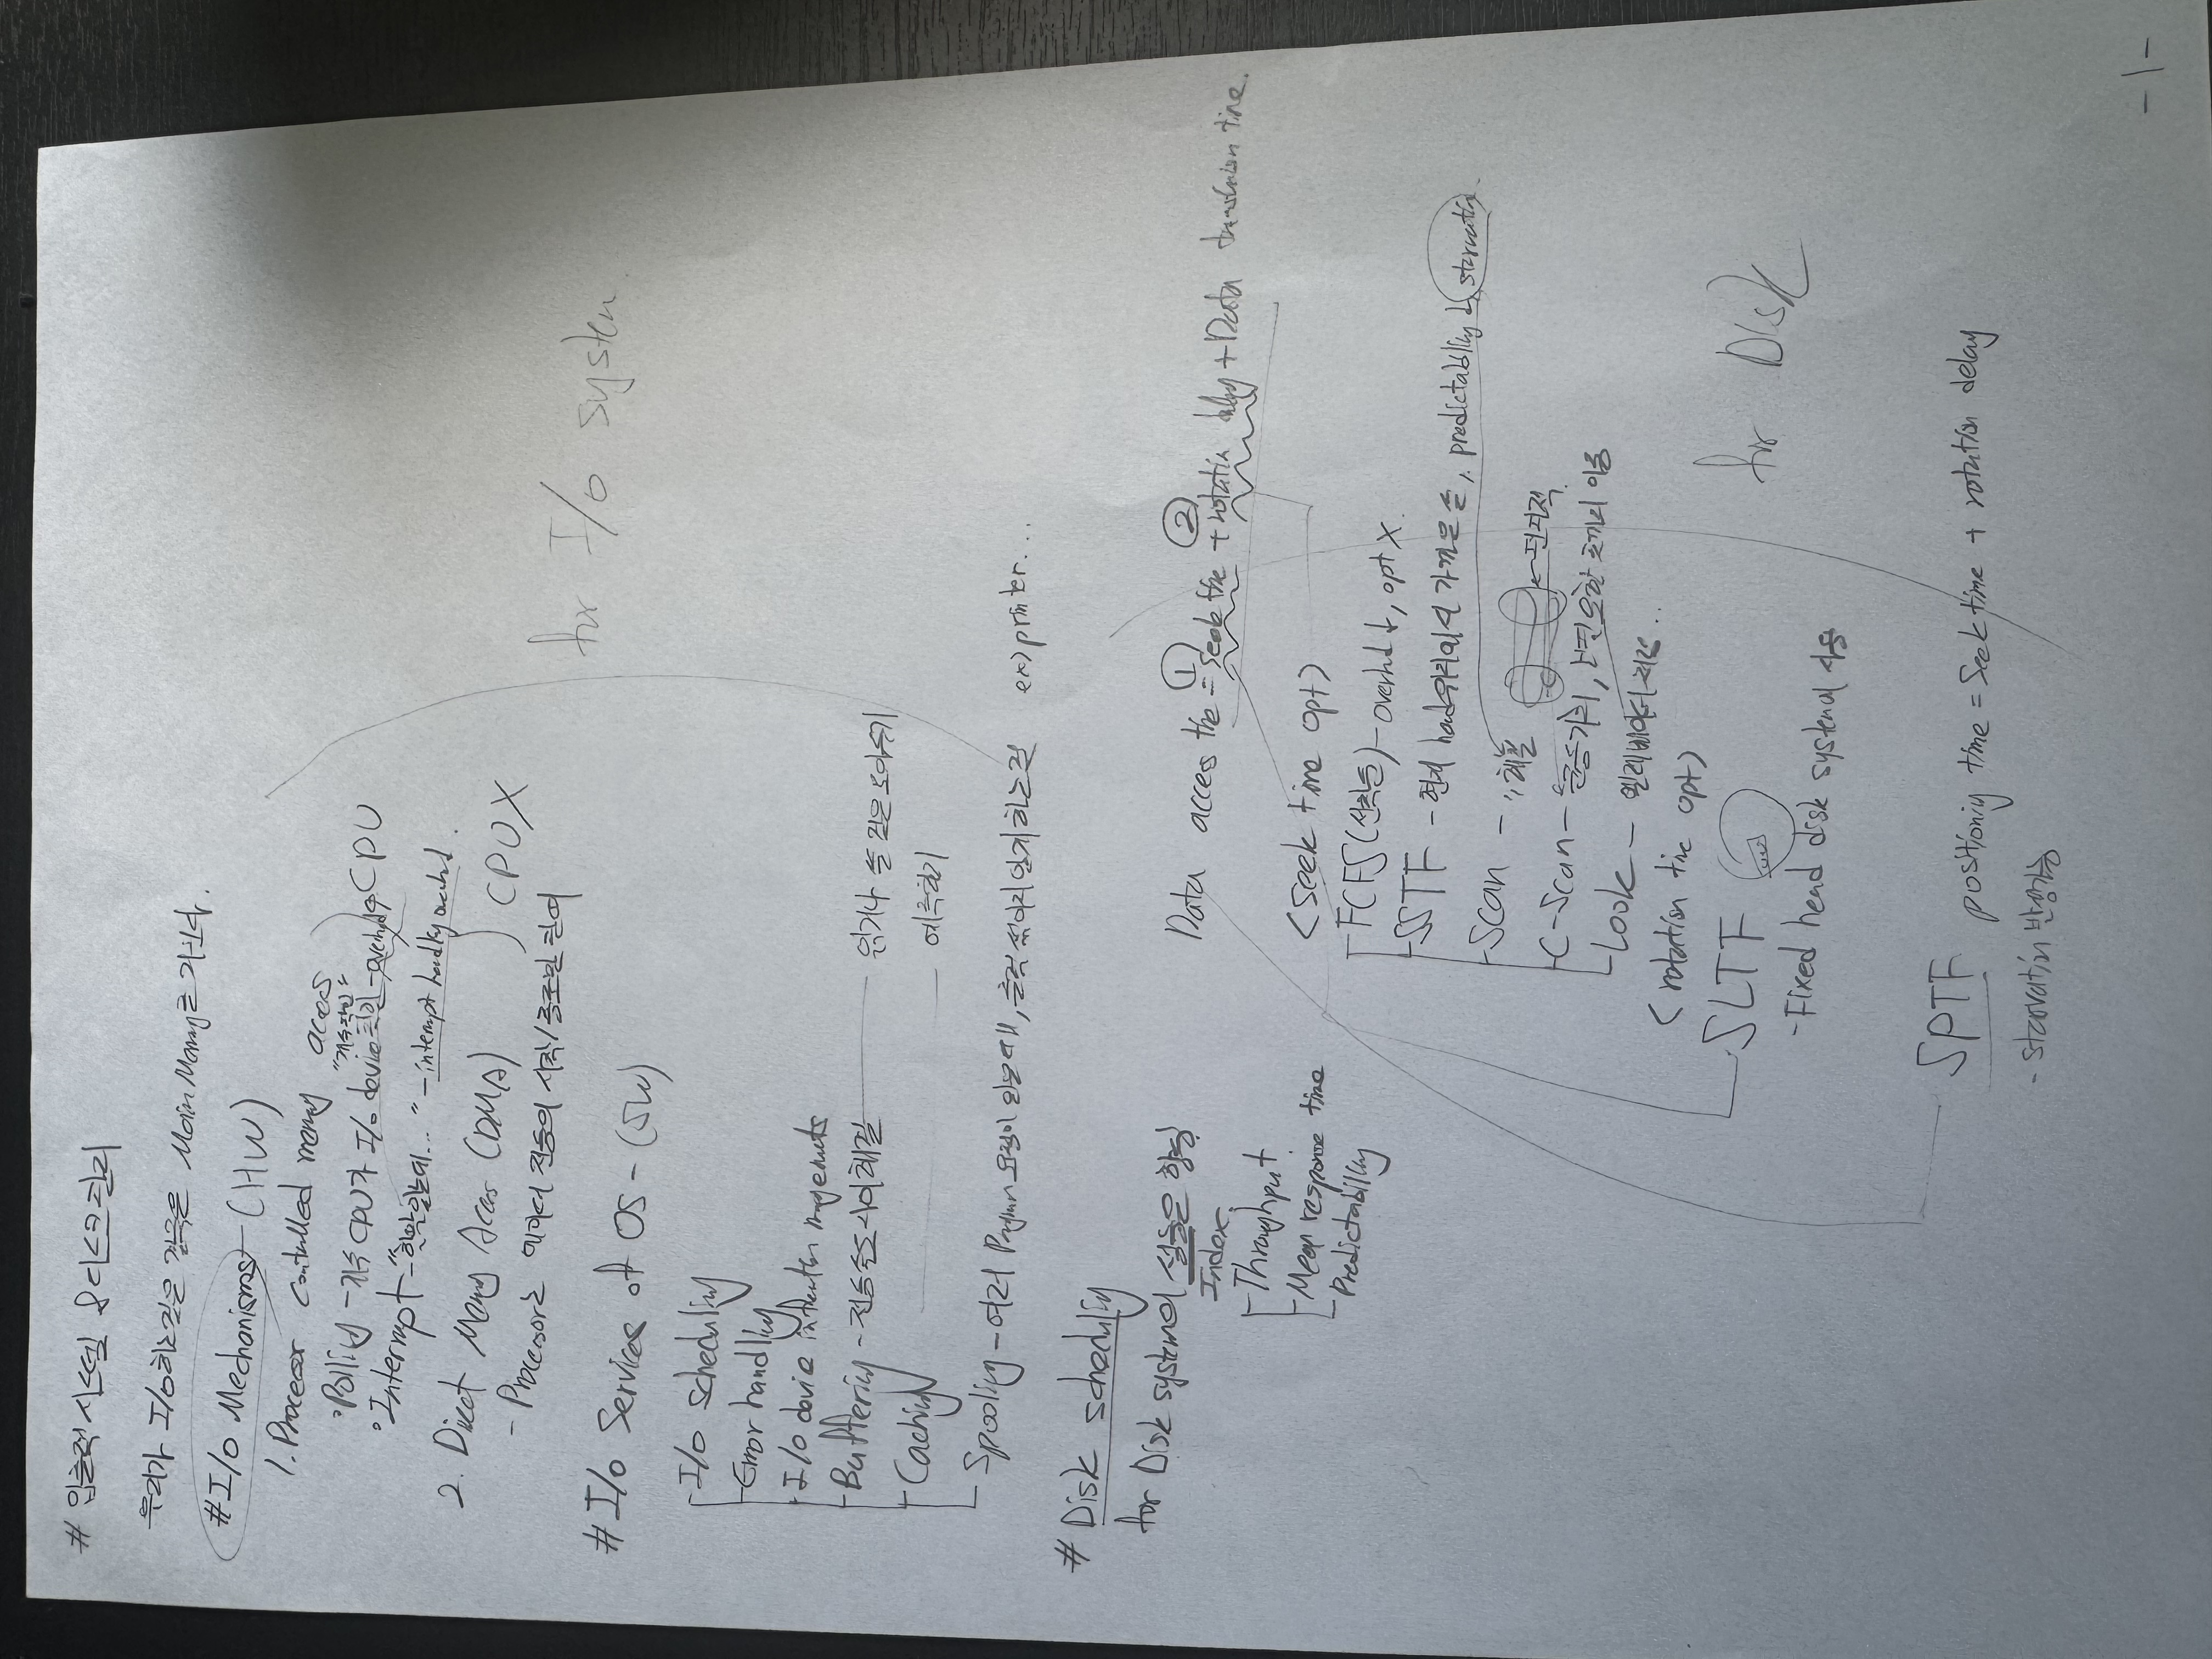 # 입출력 시스템 & 디스크 관리
우리가 I/O하는것은 결국은 Main Memory를 거친다.
# I/O Mechanisms - (HW)
1. Processor controlled memory access
"계속확인"
Polling - 계속 CPU가 I/O device 확인 - overhead↑ CPU
Interrupt - " ... " - interrupt handling overhead.
2. Direct Memory Access (DMA) CPU X
- Processor는 데이터 전송의 시작/종료만 관여
for I/O system
# I/O Services of OS - (SW)
I/O scheduling
Error handling
I/O device information managements
Buffering - 전송속도 차이 해결 읽거나 쓸 것은 모아두기
Caching 예측하기
Spooling - 여러 Program 요청이 있을때, 출력 섞이지 않게 하는것 ex) printer...
# Disk scheduling
for Disk system의 성능은 향상
Index.
Throughput
Mean response time
Predictability
① ②
Data access time = Seek time + rotation delay + Data transmission time.
(Seek time opt)
FCFS (선착순) - overhead ↓, opt X.
SSTF - 현재 head위치에서 가까운 순, predictability ↓, starvation.
Scan - 해결
C-Scan -
Look - 엘레베이터처럼..
(rotation time opt)
SLTF
- Fixed head disk system에 사용
for Disk
SPTF positioning time = Seek time + rotation delay
- starvation 발생가능
-1-